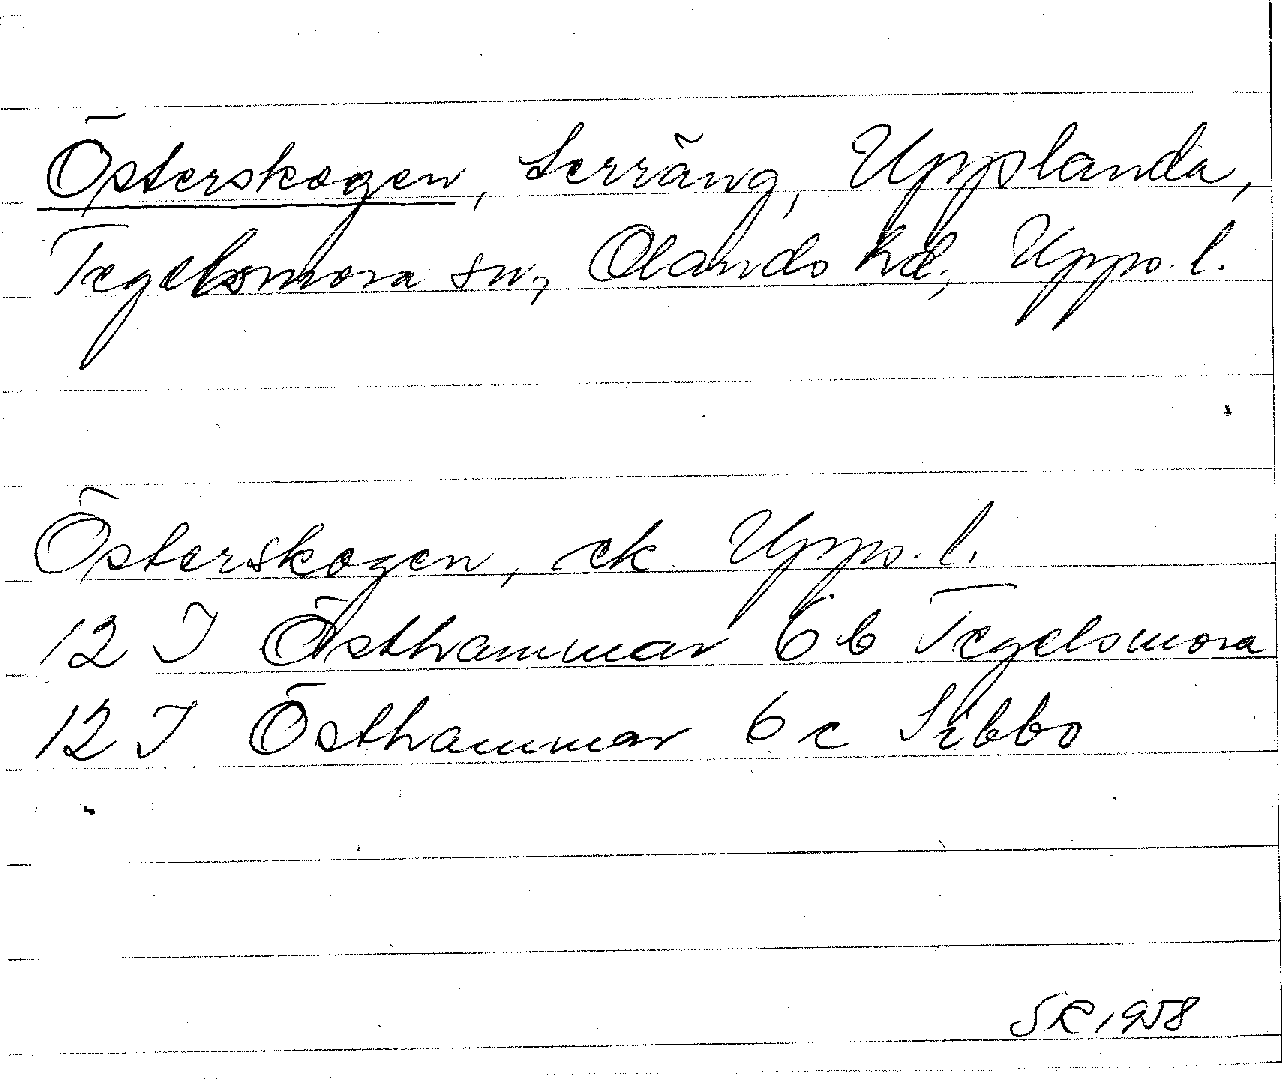 Österskogen, terräng, Upplanda,
Tegelsmora sn, Olands hd, Upps. l.
Österskogen, ek Upps. l.
12 I Östhammar 6 b Tegelsmora
12 I Östhammar 6 c Sibbo
SR 1958